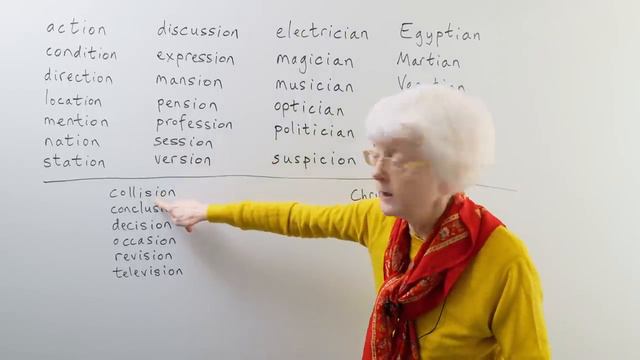 action
condition
direction
location
mention
nation
station
discussion
expression
mansion
pension
profession
session
version
electrician
magician
musician
optician
politician
suspicion
Egyptian
Martian
collision
decision
occasion
revision
television